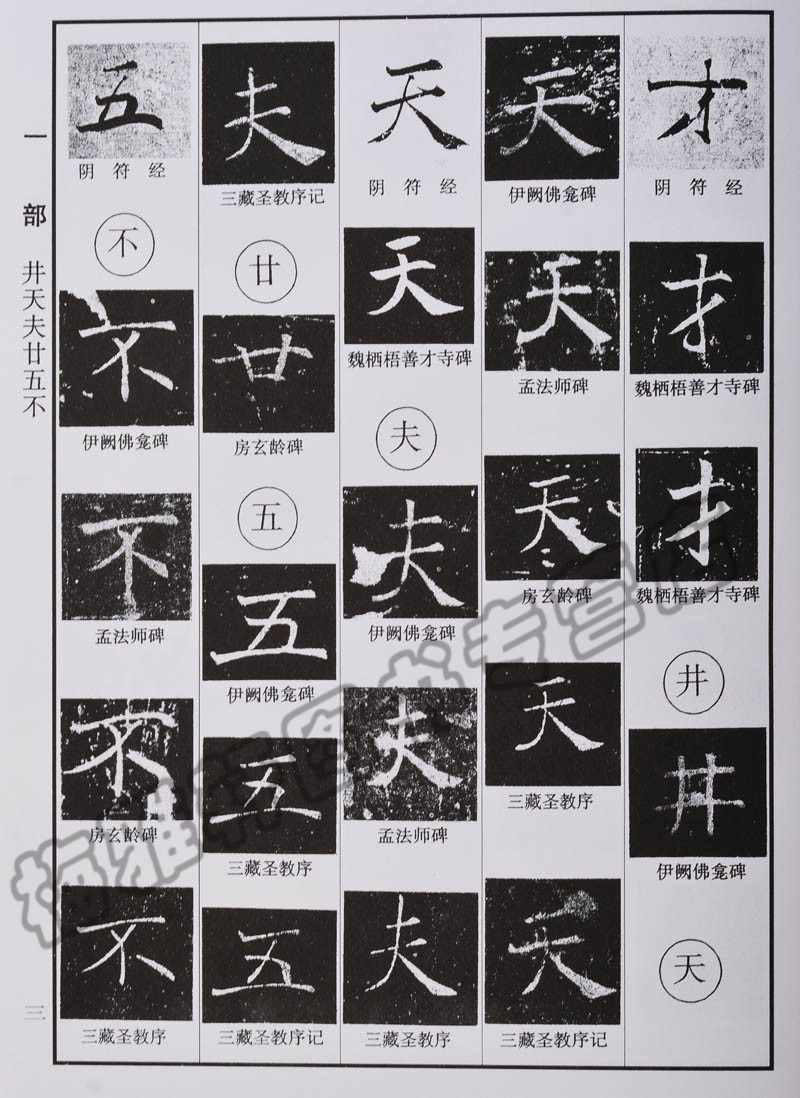 才
阴符经
才
魏栖梧善才寺碑
才
魏栖梧善才寺碑
井
井
伊阙佛龛碑
天
天
伊阙佛龛碑
天
孟法师碑
天
房玄龄碑
天
三藏圣教序
天
三藏圣教序记
天
阴符经
天
魏栖梧善才寺碑
夫
夫
伊阙佛龛碑
夫
孟法师碑
夫
三藏圣教序
夫
三藏圣教序记
廿
廿
房玄龄碑
五
五
伊阙佛龛碑
五
三藏圣教序
五
三藏圣教序记
五
阴符经
不
不
伊阙佛龛碑
不
孟法师碑
不
房玄龄碑
不
三藏圣教序
一部 井天夫廿五不
三
梅雅轩图书专营店